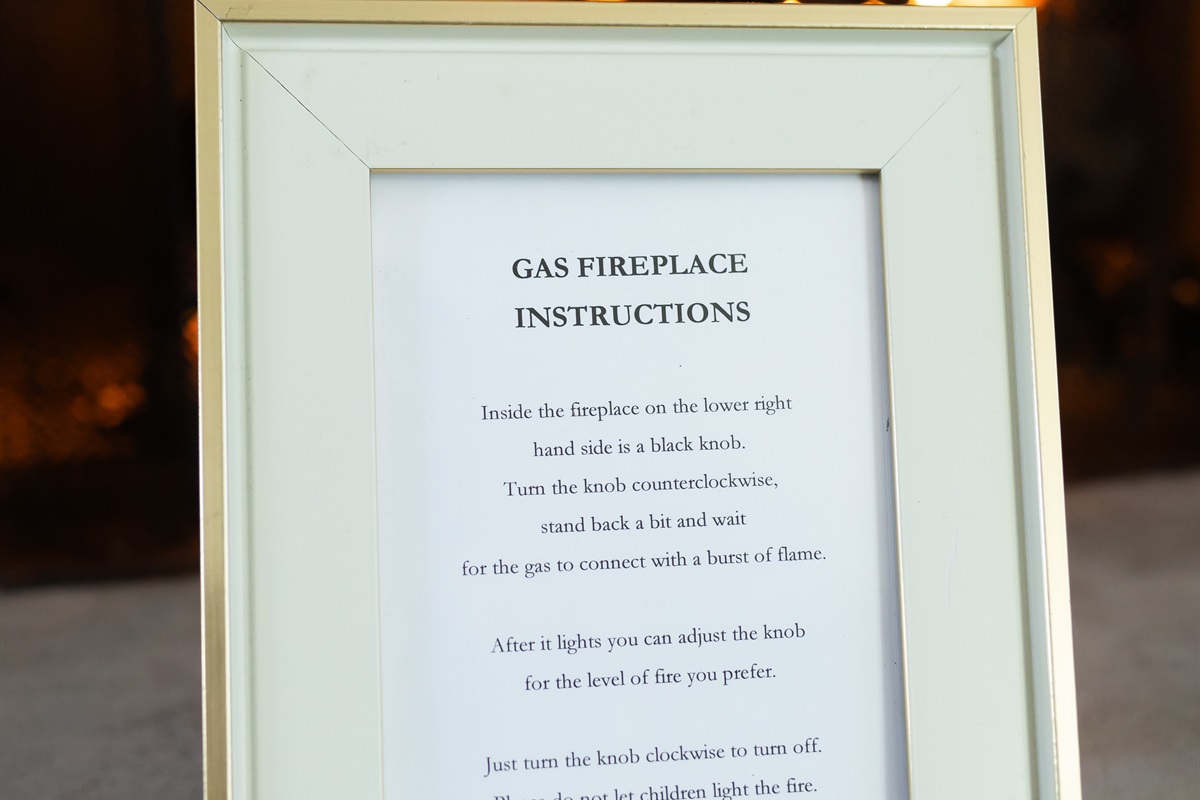 GAS FIREPLACE
INSTRUCTIONS
Inside the fireplace on the lower right
hand side is a black knob.
Turn the knob counterclockwise,
stand back a bit and wait
for the gas to connect with a burst of flame.
After it lights you can adjust the knob
for the level of fire you prefer.
Just turn the knob clockwise to turn off.
Please do not let children light the fire.